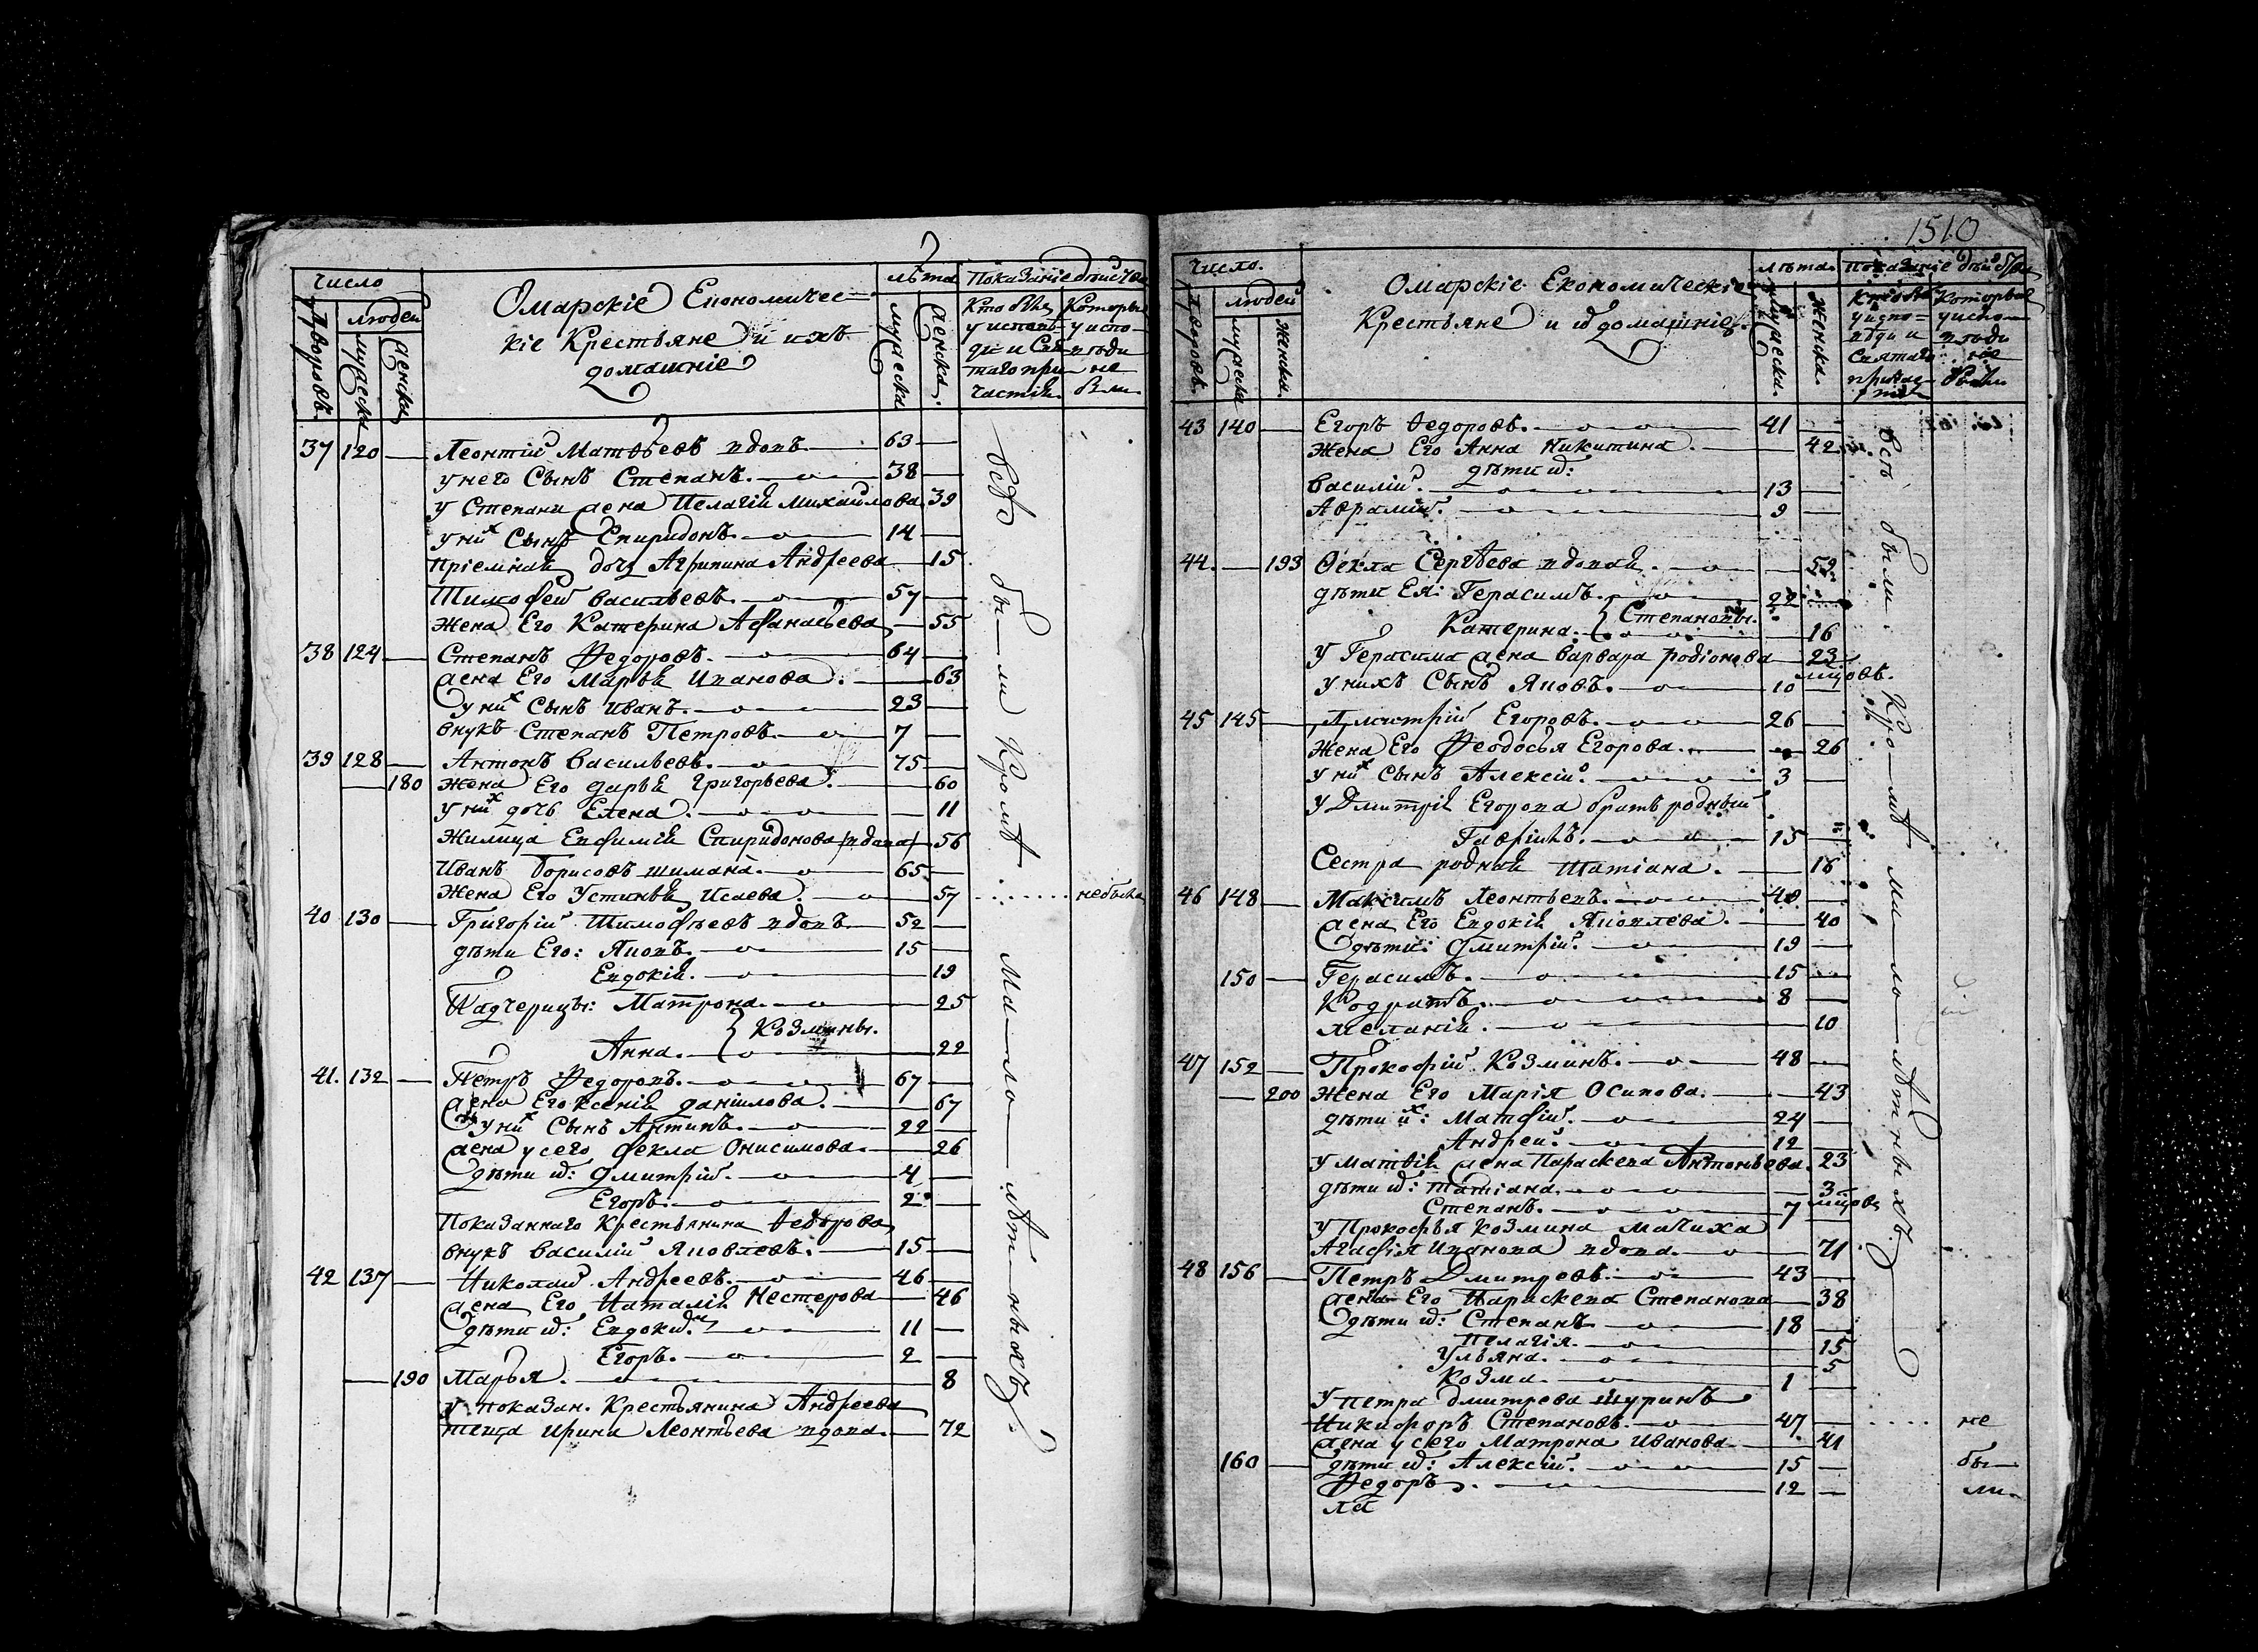 число
дворовъ.
людей
мужеска
женска
Омарскіе Економичес-
кіе Крестьяне и ихъ
домашніе
лѣта
мужеска
женска.
Показаніе дѣйства
Кто былъ
у исповѣ-
ди и Свя-
таго при-
частія.
Которые
у испо-
вѣди
не
были.
37 120 — Леонтій Матвѣевъ вдовъ — 63 —
у него Сынъ Степанъ. — 38 —
у Степана жена Пелагія Михайлова 39
у них Сынъ Спиридонъ. — 14 —
Пріемная дочь Агрипина Андреева — 15
Тимофей Васильевъ. — 57 —
Жена Его Катерина Афанасьева — 55
38 124 — Степанъ Федоровъ. — 64 —
жена Его Марья Иванова. — 63
у них Сынъ Иванъ. — 23 —
внукъ Степанъ Петровъ. — 7 —
39 128 — Антонъ Васильевъ. — 75 —
— 180 Жена Его Дарья Григорьева. — 60
у них дочь Елена. — 11
Жилица Евфимія Спиридонова /вдова/ 56
Иванъ Борисовъ — 65 —
Жена Его Устинья Исаева. — 57 небыла
40 130 — Григорій Тимофѣевъ вдовъ — 52 —
дѣти Его: Яковъ. — 15 —
Евдокія. — 19
Падчерицы: Матрона. — 25
} Козмины.
Анна. — 22
41. 132 — Петръ Федоровъ. — 67 —
жена Его Ксенія Даніилова. — 67
у них Сынъ Антипъ. — 22 —
жена у сего Фекла Онисимова. — 26
дѣти их: Дмитрій. — 4 —
Егоръ. — 2 —
Показаннаго Крестьянина Федорова
внукъ Василій Яковлевъ. — 15 —
42 137 — Николай Андреевъ. — 46 —
жена Его Наталія Нестерова — 46
дѣти их: Евдоким. — 11 —
Егоръ. — 2 —
— 190 Марья. — 8
у показан. Крестьянина Андреева
теща Ирина Леонтьева вдова. — 72
всѣ бы-ли Кромѣ ма-ло-лѣт-ныхъ
1510
число.
дворовъ.
людей
мужеска
женска.
Омарскіе Економическіе
Крестьяне и их домашніе.
лѣта.
мужеска.
женска.
показаніе дѣйства
Кто былъ
у испо-
вѣди и
Святаго
причас-
тія
Которые
у испо-
вѣди
не
были
43 140 — Егоръ Федоровъ. — 41 —
Жена Его Анна Никитина. — 42
дѣти их:
Василій. — 13 —
Аврамій. — 9 —
44. — 193 Фекла Сергѣева вдовая. — 59
дѣти Ея: Герасимъ. — 22 —
} Степановы.
Катерина. — 16
У Герасима жена Варвара Родіонова — 23
у нихъ Сынъ Яковъ. — 10 мцовъ.
45 145 — Дмитрій Егоровъ. — 26 —
Жена Его Феодосья Егорова. — 26
у них Сынъ Алексій. — 3 —
у Дмитрія Егорова братъ родный
Гавріилъ. — 15 —
Сестра родная Татіана. — 16
46 148 — Максимъ Леонтьевъ. — 48 —
жена Его Евдокія Яковлева. — 40
дѣти: Дмитрій. — 19 —
150 — Герасимъ. — 15 —
Кодратъ. — 8 —
Меланія. — 10
47 152 — Прокофій Козминъ. — 48 —
— 200 Жена Его Марія Осипова. — 43
дѣти их: Матфій. — 24 —
Андрей. — 12 —
у Матвія жена Параскева Антоньева. 23
дѣти их: Татіана. — 3
Степанъ. — 7 мцовъ
у Прокофья Козмина мачиха
Агафія Иванова вдова. — 71
48 156 — Петръ Дмитревъ. — 43 —
жена Его Параскева Степанова — 38
дѣти их: Степанъ — 18 —
Пелагія. — 15
Ульяна. — 5
Козма. — 1 —
у Петра Дмитрева шуринъ
Никифоръ Степановъ. — 47 — не
жена у сего Матрона Иванова. — 41
160 — дѣти их: Алексій. — 15 — бы-
Федоръ. — 12 — ли.
всѣ были. Кро-мѣ ма-ло-лѣтныхъ